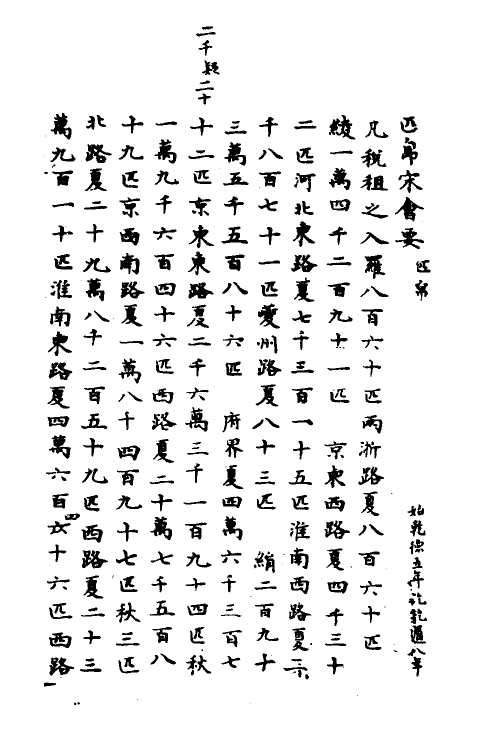 匹帛宋會要 匹帛 始乾德五年訖乾道八年
凡稅租之入羅八百六十匹兩浙路夏八百六十匹
綾一萬四千二百九十一匹 京東西路夏四千三十
二匹河北東路夏七千三百一十五匹淮南西路夏二
千八百七十一匹夔州路夏八十三匹 絹二百九十
三萬五千五百八十六匹 府界夏四萬六千三百七
十二匹京東東路夏二千六萬三千一百九十四匹秋
一萬九千六百四十六匹西路夏二十萬七千五百八
十九匹京西南路夏一萬八千四百九十七匹秋三匹
北路夏二十九萬八千二百五十九匹西路夏二十三
萬九百一十匹淮南東路夏四萬六百六十六匹西路
二千疑二十
四
一